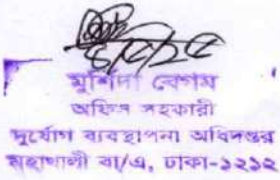 ৮/৫/২৫
মুর্শিদা বেগম
অফিস সহকারী
দুর্যোগ ব্যবস্থাপনা অধিদপ্তর
মহাখালী বা/এ, ঢাকা-১২১২